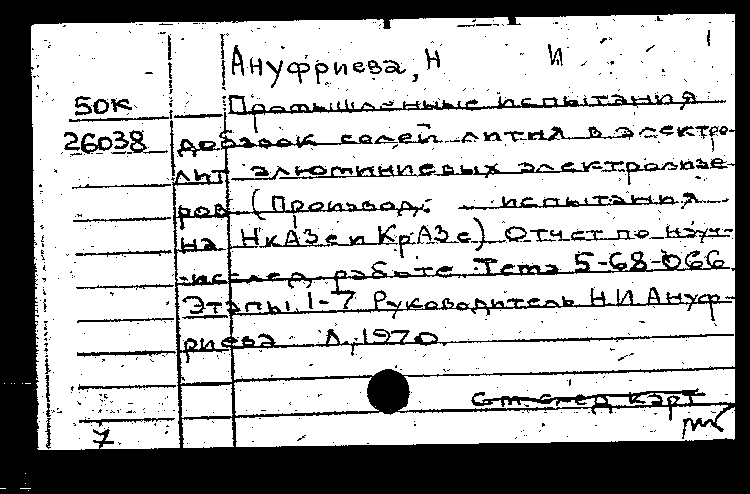 Ануфриева, Н И
50К Промышленные испытания
26038 добавок солей лития в электро-
лит алюминиевых электролизе
ров (Производ. испытания
на НкАЗе и КрАЗе) Отчет по науч-
-исслед. работе. Тема 5-68-066
Этапы 1-7 Руководитель Н.И Ануф-
риева Л., 1970
См след карт
7